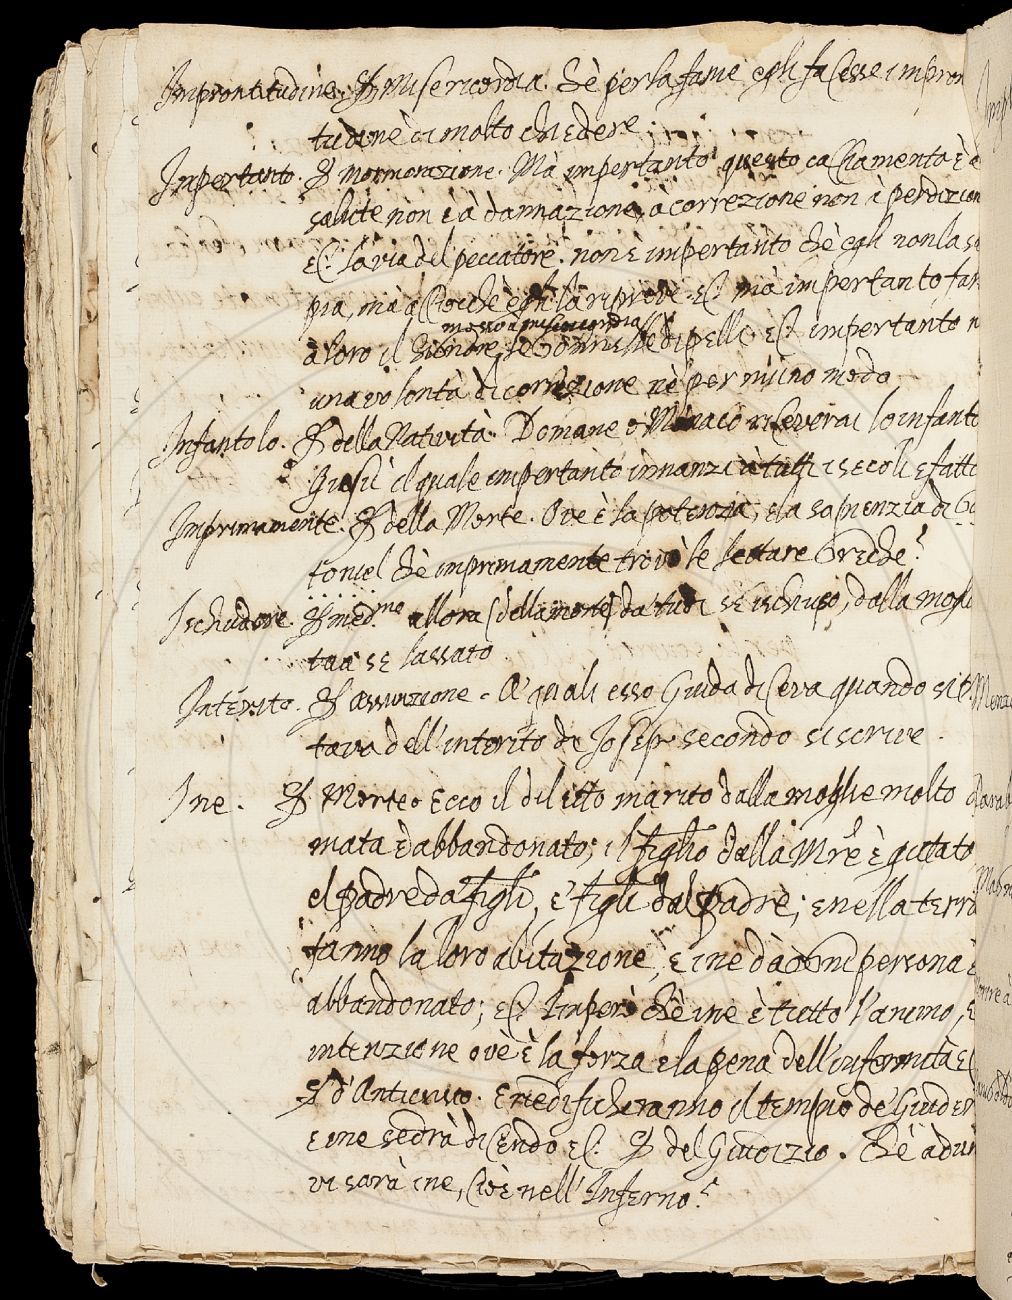 Improntitudine. S. Misericordia. Chè per la fame egli facesse impron
tudine di molto chiedere.
Inpertanto. S. Mormorazione. Mà impertanto questo cacciamento è à
salute non è à dannazione, à correzione non à perdizion
&c. la via del peccatore. non è impertanto chè egli non la sa
pia, mà acciocchè egli la riprove. &c. mà impertanto fa
à loro il Signore mosso à misericordia le Gonnelle di pelle &c. impertanto n
una volontà di correzione nè per niuno modo
Infantolo. S. della Natività. Domane o Monaco riceverai lo infanto
Giesù il quale impertanto innanzi à tutti i secoli è fatto
Imprimamente. S. della Morte. Ove è la potenzia, e la sapienzia di
toniel chè imprimamente trovò le lettare Greche?
Ischudere S. med.mo allora (della morte) da tutti se ischuso, dalla mogl
tua se lassato.
Intérito. S. Assunzione. A' quali esso Giuda diceva quando si t
tava dell'interito di Josep. secondo si scrive.
Ine. S. Morte. Ecco il diletto marito dalla moglie molto
mata è abbandonato; il figlio dalla Mre è gittato
el padre da figli, e' figli dal padre; e nella terra
fanno la loro abitazione, e ine dà ogni persona è
abbandonato; &c. Imperò chè ine è tutto l'animo, e
intenzione ovè è la forza e la pena dell'infermità &c
S. d'Anticristo. E riedificheranno il tempio de' Giudei
e ine sedrà dicendo &c. S. del Giudizio. Chè adun
vi sarà ine, cioè nell'Inferno?